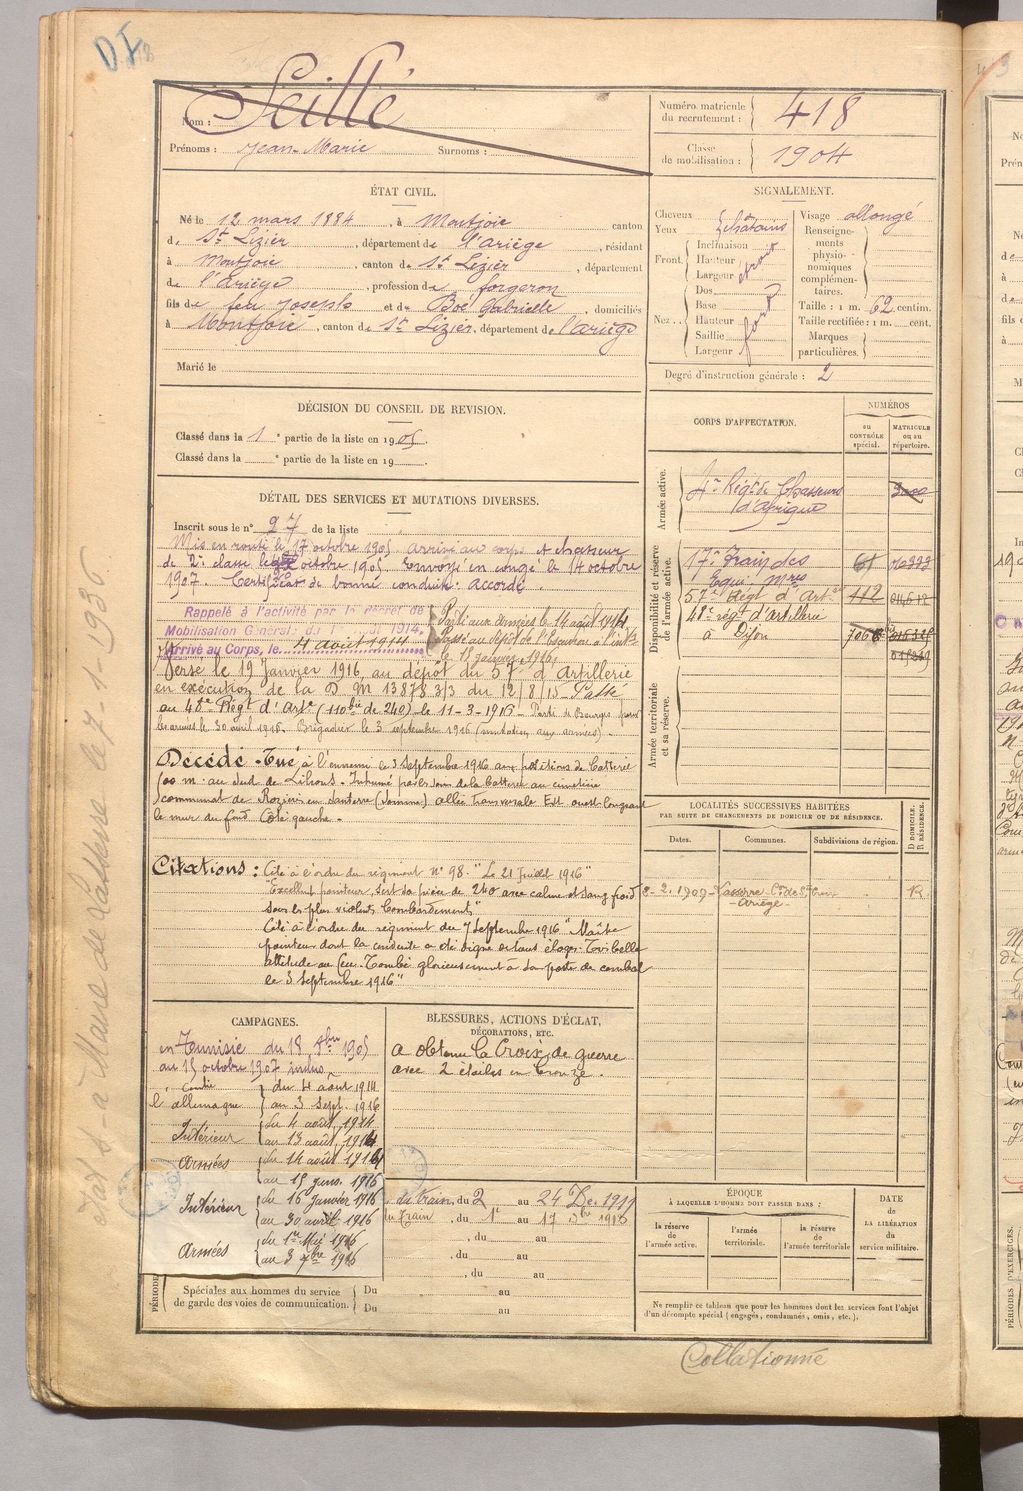 DI
418
Seillé
Nom :
Prénoms : Jean-Marie Surnoms :
Numéro matricule du recrutement : 418
Classe de mobilisation : 1904
ÉTAT CIVIL.
Né le 12 mars 1884, à Montjoie canton
de St Lizier, département de l'Ariège, résidant
à Montjoie, canton de St Lizier, département
de l'Ariège, profession de forgeron
fils de feu Joseph et de Boé Gabrielle, domiciliés
à Montjoie, canton de St Lizier, département de l'Ariège
Marié le
SIGNALEMENT.
Cheveux châtains
Yeux
Front. Inclinaison
Hauteur
Largeur étroit
Nez.. Dos
Base
Hauteur
Saillie
Largeur fort
Visage allongé
Renseignements physionomiques complémentaires.
Taille : 1 m. 62 centim.
Taille rectifiée : 1 m. cent.
Marques particulières.
Degré d'instruction générale : 2
DÉCISION DU CONSEIL DE REVISION.
Classé dans la 1e partie de la liste en 1905.
Classé dans la e partie de la liste en 19 .
DÉTAIL DES SERVICES ET MUTATIONS DIVERSES.
Inscrit sous le n° 27 de la liste
Mis en route le 17 octobre 1905 arrivé au corps et chasseur
de 2e classe le octobre 1905. Envoyé en congé le 14 octobre
1907. Certificat de bonne conduite accordé.
Rappelé à l'activité par le décret de
Mobilisation Générale du 1er août 1914,
Arrivé au Corps, le 4 août 1914
Passé aux armées le 14 août 1914
Passé au dépôt de l'Escadron à l'intr
le 15 janvier 1916
Versé le 19 Janvier 1916 au dépôt du 57e d'Artillerie
en exécution de la D M 13878 3/3 du 12/8/15 Passé
au 48e Régt d'Arte (110e Bie de 240) le 11-3-1916 - Parti de Bourges pour
les armées le 30 avril 1916. Brigadier le 3 septembre 1916 (mutation aux armées).
Décédé - Tué à l'ennemi le 3 Septembre 1916 aux positions de batterie
100 m. au Sud de Lihons - Inhumé par les soins de la batterie au cimetière
communal de Rozières en Santerre (Somme) allée transversale Est ouest longeant
le mur du fond Côté gauche -
Citations : Cité à l'ordre du régiment n° 98. "Le 21 Juillet 1916"
"Excellent pointeur, sert sa pièce de 240 avec calme et sang froid
sous les plus violents bombardements"
Cité à l'ordre du régiment du 7 Septembre 1916 "Maître
pointeur dont la conduite a été digne de tous éloges. Très belle
attitude au feu. Tombé glorieusement à son poste de combat
le 3 Septembre 1916"
CORPS D'AFFECTATION.
NUMÉROS
au CONTRÔLE spécial.
MATRICULE ou au répertoire.
Armée active.
4e Régt de Chasseurs d'Afrique
Disponibilité et réserve de l'armée active.
17e Train des Equi. Mres
57e Régt d'Arte 112
48e régt d'artillerie
à Dijon
Armée territoriale et sa réserve.
LOCALITÉS SUCCESSIVES HABITÉES
PAR SUITE DE CHANGEMENTS DE DOMICILE OU DE RÉSIDENCE.
Dates. Communes. Subdivisions de région. D DOMICILE. R RÉSIDENCE.
2. 1909 - Lasserre - Con de St Croix - Ariège - R.
CAMPAGNES.
en Tunisie du 18 8bre 1905
au 15 octobre 1907 inclus
Contre l'allemagne du 4 août 1914
au 3 Sept. 1916
Intérieur du 4 août 1914
au 13 août 1914
Armées du 14 août 1914
au 15 janv. 1916
Intérieur du 16 janvier 1916
au 30 avril 1916
Armées du 1er Mai 1916
au 3 7bre 1916
BLESSURES, ACTIONS D'ÉCLAT,
DÉCORATIONS, ETC.
a obtenu la Croix de guerre
avec 2 étoiles en bronze.
du train, du 2 au 24 Dec. 1911
du Train, du 1er au 17
, du au
, du au
PÉRIODES
Spéciales aux hommes du service de garde des voies de communication. Du au
Du au
ÉPOQUE
À LAQUELLE L'HOMME DOIT PASSER DANS :
la réserve de l'armée active. l'armée territoriale. la réserve de l'armée territoriale
DATE de LA LIBÉRATION du service militaire.
Ne remplir ce tableau que pour les hommes dont les services font l'objet
d'un décompte spécial (engagés, condamnés, omis, etc.).
Collationné
Maire de Lasserre le 7-1-1936
PÉRIODES D'EXERCICES.